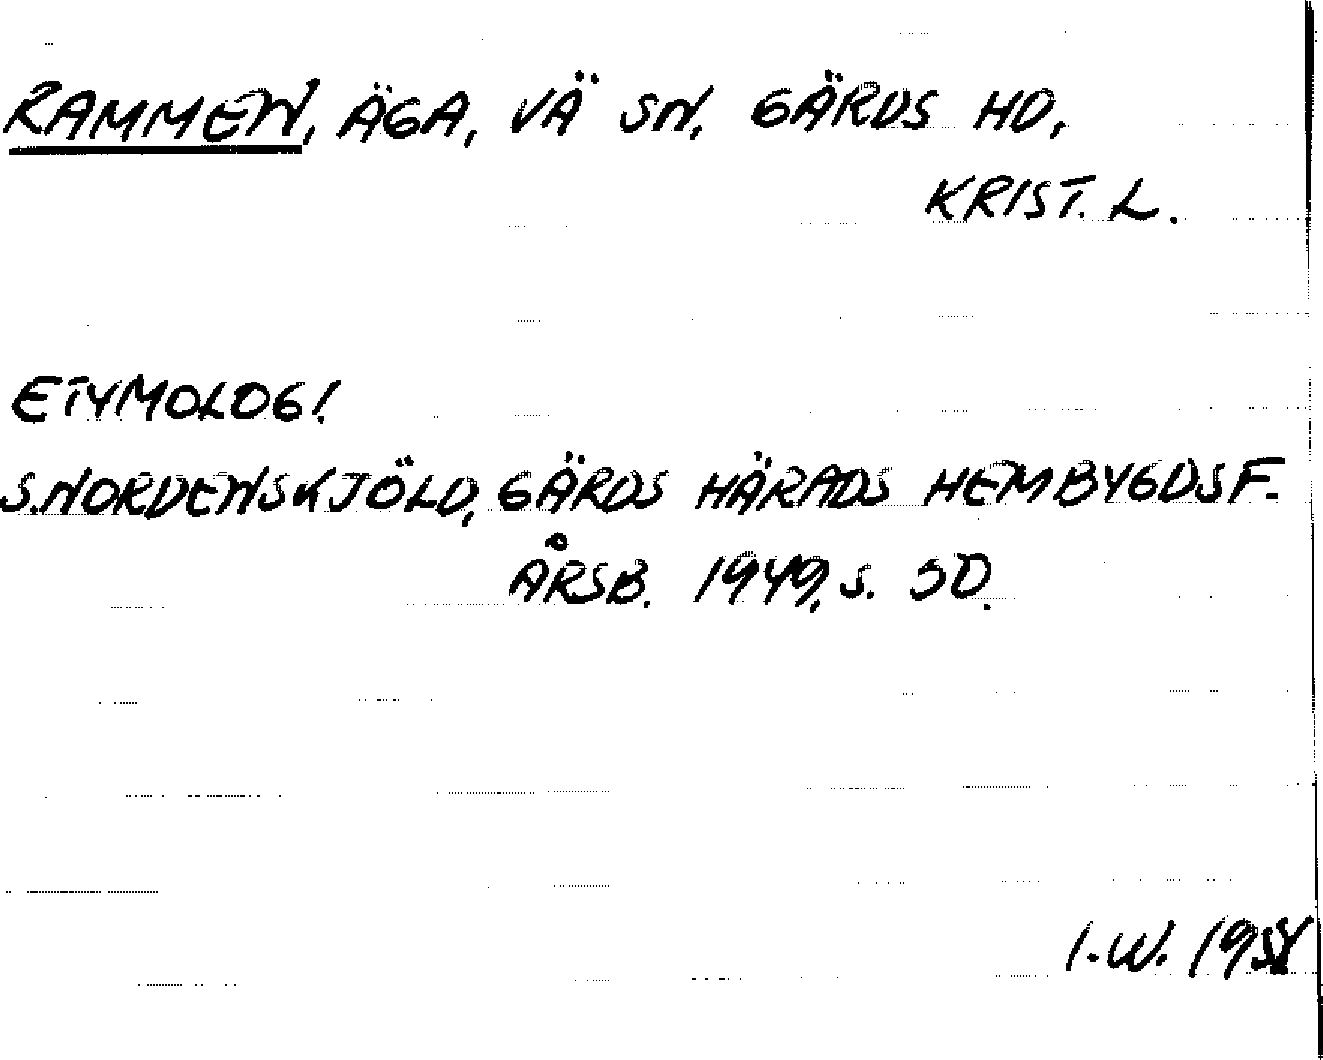 RAMMEN, ÄGA, VÄ SN, GÄRDS HD,
KRIST. L.
ETYMOLOGI.
S. NORDENSKJÖLD, GÄRDS HÄRADS HEMBYGDSF.
ÅRSB. 1949, S. 50.
I. W.